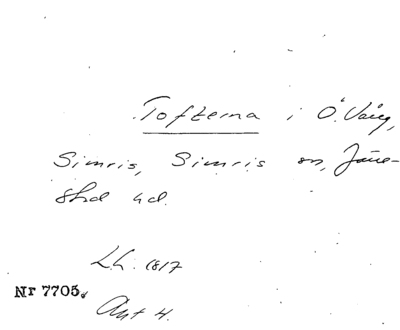 Tofterna i Ö. Vång,
Simris, Simris sn, Järre-
stad hd.
L.h. 1817
Nr 7705.
Akt 4.